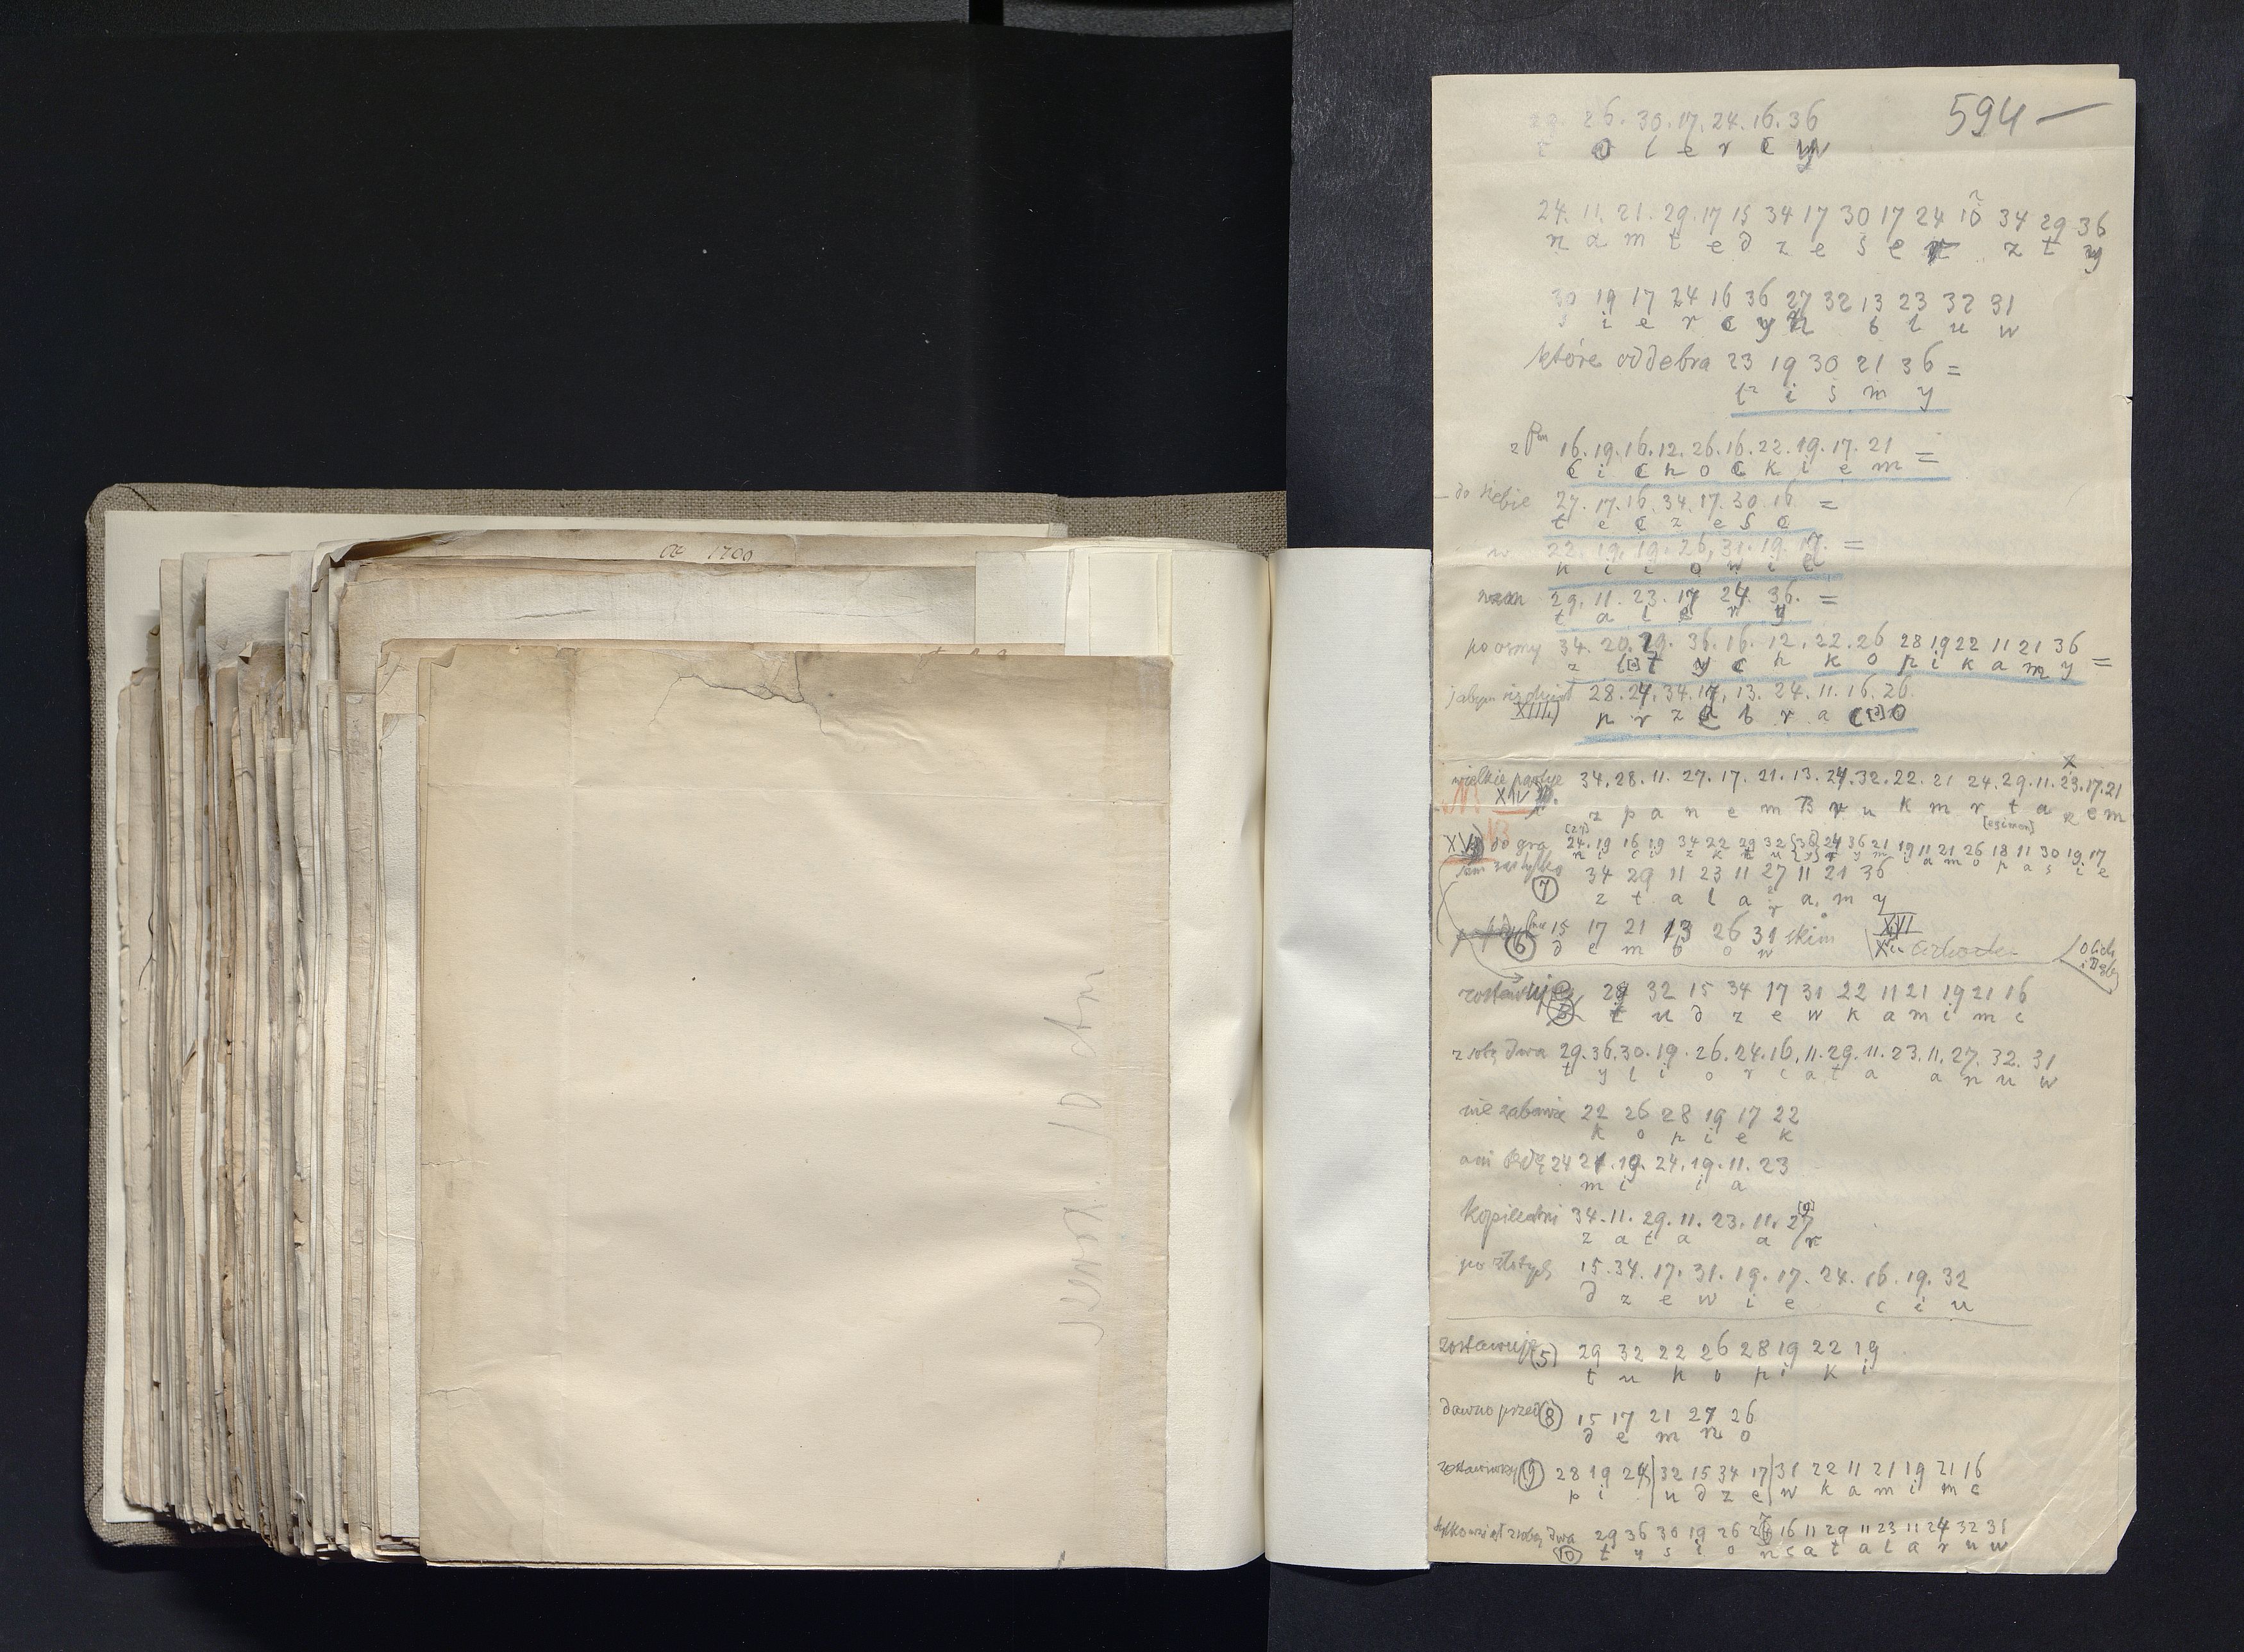 ca 1700
594 —
29. 26. 30. 17. 24. 16. 36
t o l e r c y
24. 11. 21. 29. 17 15 34 17 30 17 24 34 29 36
n a m t e d z e s e z t y
30 19 17 24 16 36 27 32 13 23 32 31
s i e r c y n b l u w
które oddebra 23 19 30 21 36 =
l i s m y
z Pm 16. 19. 16. 12. 26. 16. 22. 19. 17. 21 =
C i c h o c k i e m
— do siebie 27. 17. 16. 34. 17. 30. 16 =
t e c z e s c
w 22. 19. 19. 26. 31. 19. 17. =
k i i o w i e
29. 11. 23. 17 24. 36. =
t a l e r y
po osmy 34. 20. 29. 36. 16. 12. 22. 26 28 19 22 11 21 36 =
z t y c h k o p i k a m y
28. 24. 34. 17. 13. 24. 11. 16. 26.
XIII) p r z e b r a c o
wielkie partye 34. 28. 11. 27. 17. 21. 13. 24. 32. 22. 21 24. 29. 11. 23. 17. 21
XIV z p a n e m B r u k m r t a R e m
XV) do gra 24. 19 16 19 34 22 29 32 [36] 24 36 21 19 11 21 26 18 11 30 19 17
n i c i z k t u y m i a m o p a s i e
34 29 11 23 11 27 11 21 36
(7) z t a l a r a m y
(6) 15 17 21 13 26 31 skim XVI
d e m b o w
zostawuje 29 32 15 34 17 31 22 11 21 19 21 16
t u d z e w k a m i m c
z sobą dwa 29. 36. 30. 19. 26. 24. 16. 11. 29. 11. 23. 11. 27. 32. 31
t y l i o r c a t a a n u w
nie zabawie 22 26 28 19 17 22
k o p i e k
ani 24 21. 19. 24. 19. 11. 23
m i i a
34. 11. 29. 11. 23. 11. 27
z a t a a r
po złotych 15. 34. 17. 31. 19. 17. 24. 16. 19. 32
d z e w i e c i u
zostawuje (5) 29 32 22 26 28 19 22 19
t u k o p i k i
dawno przed (8) 15 17 21 27 26
d e m n o
zostawiwszy (9) 28 19 24 | 32 15 34 17 | 31 22 11 21 19 21 16
p i u d z e w k a m i m c
tylko wziął z sobą dwa 29 36 30 19 26 27 16 11 29 11 23 11 24 32 31
(10) t y s i o n c a t a l a r u w